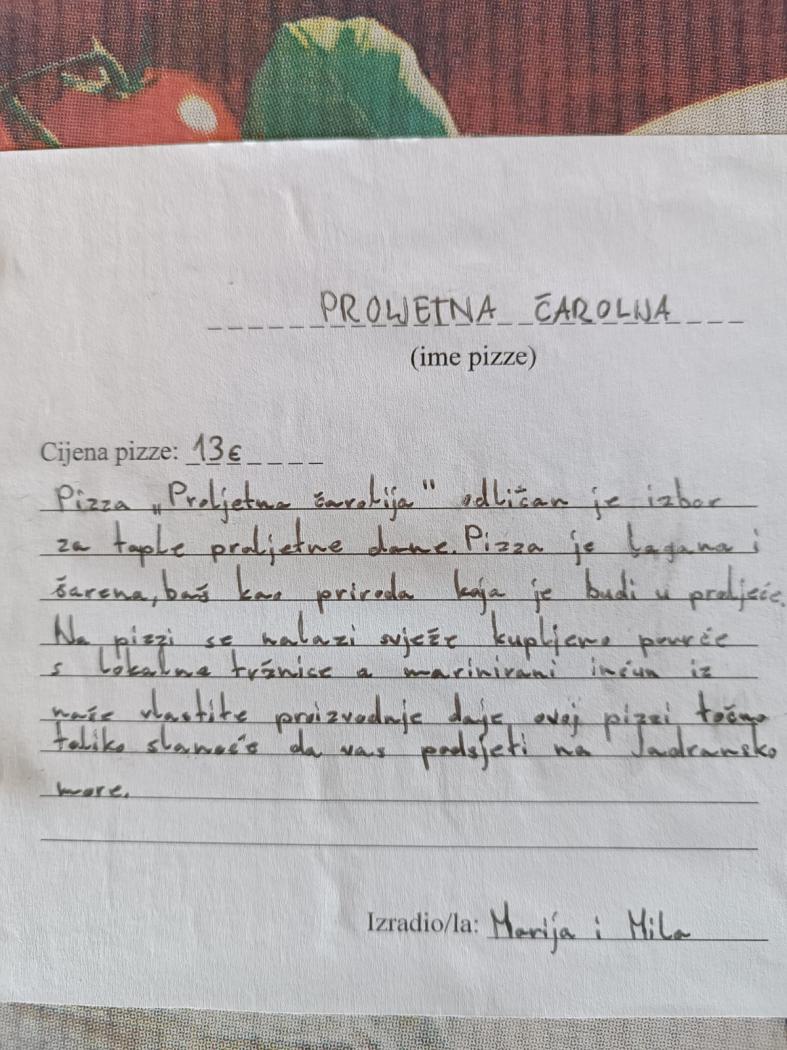 PROLJETNA ČAROLIJA
(ime pizze)
Cijena pizze: 13€
Pizza „Proljetna čarolija“ odličan je izbor
za tople proljetne dane. Pizza je lagana i
šarena, baš kao priroda koja je budi u proljeće.
Na pizzi se nalazi svježe kupljeno povrće
s lokalne tržnice a marinirani inćun iz
naše vlastite proizvodnje daje ovoj pizzi točno
toliko slanoće da vas podsjeti na Jadransko
more.
Izradio/la: Marija i Mila